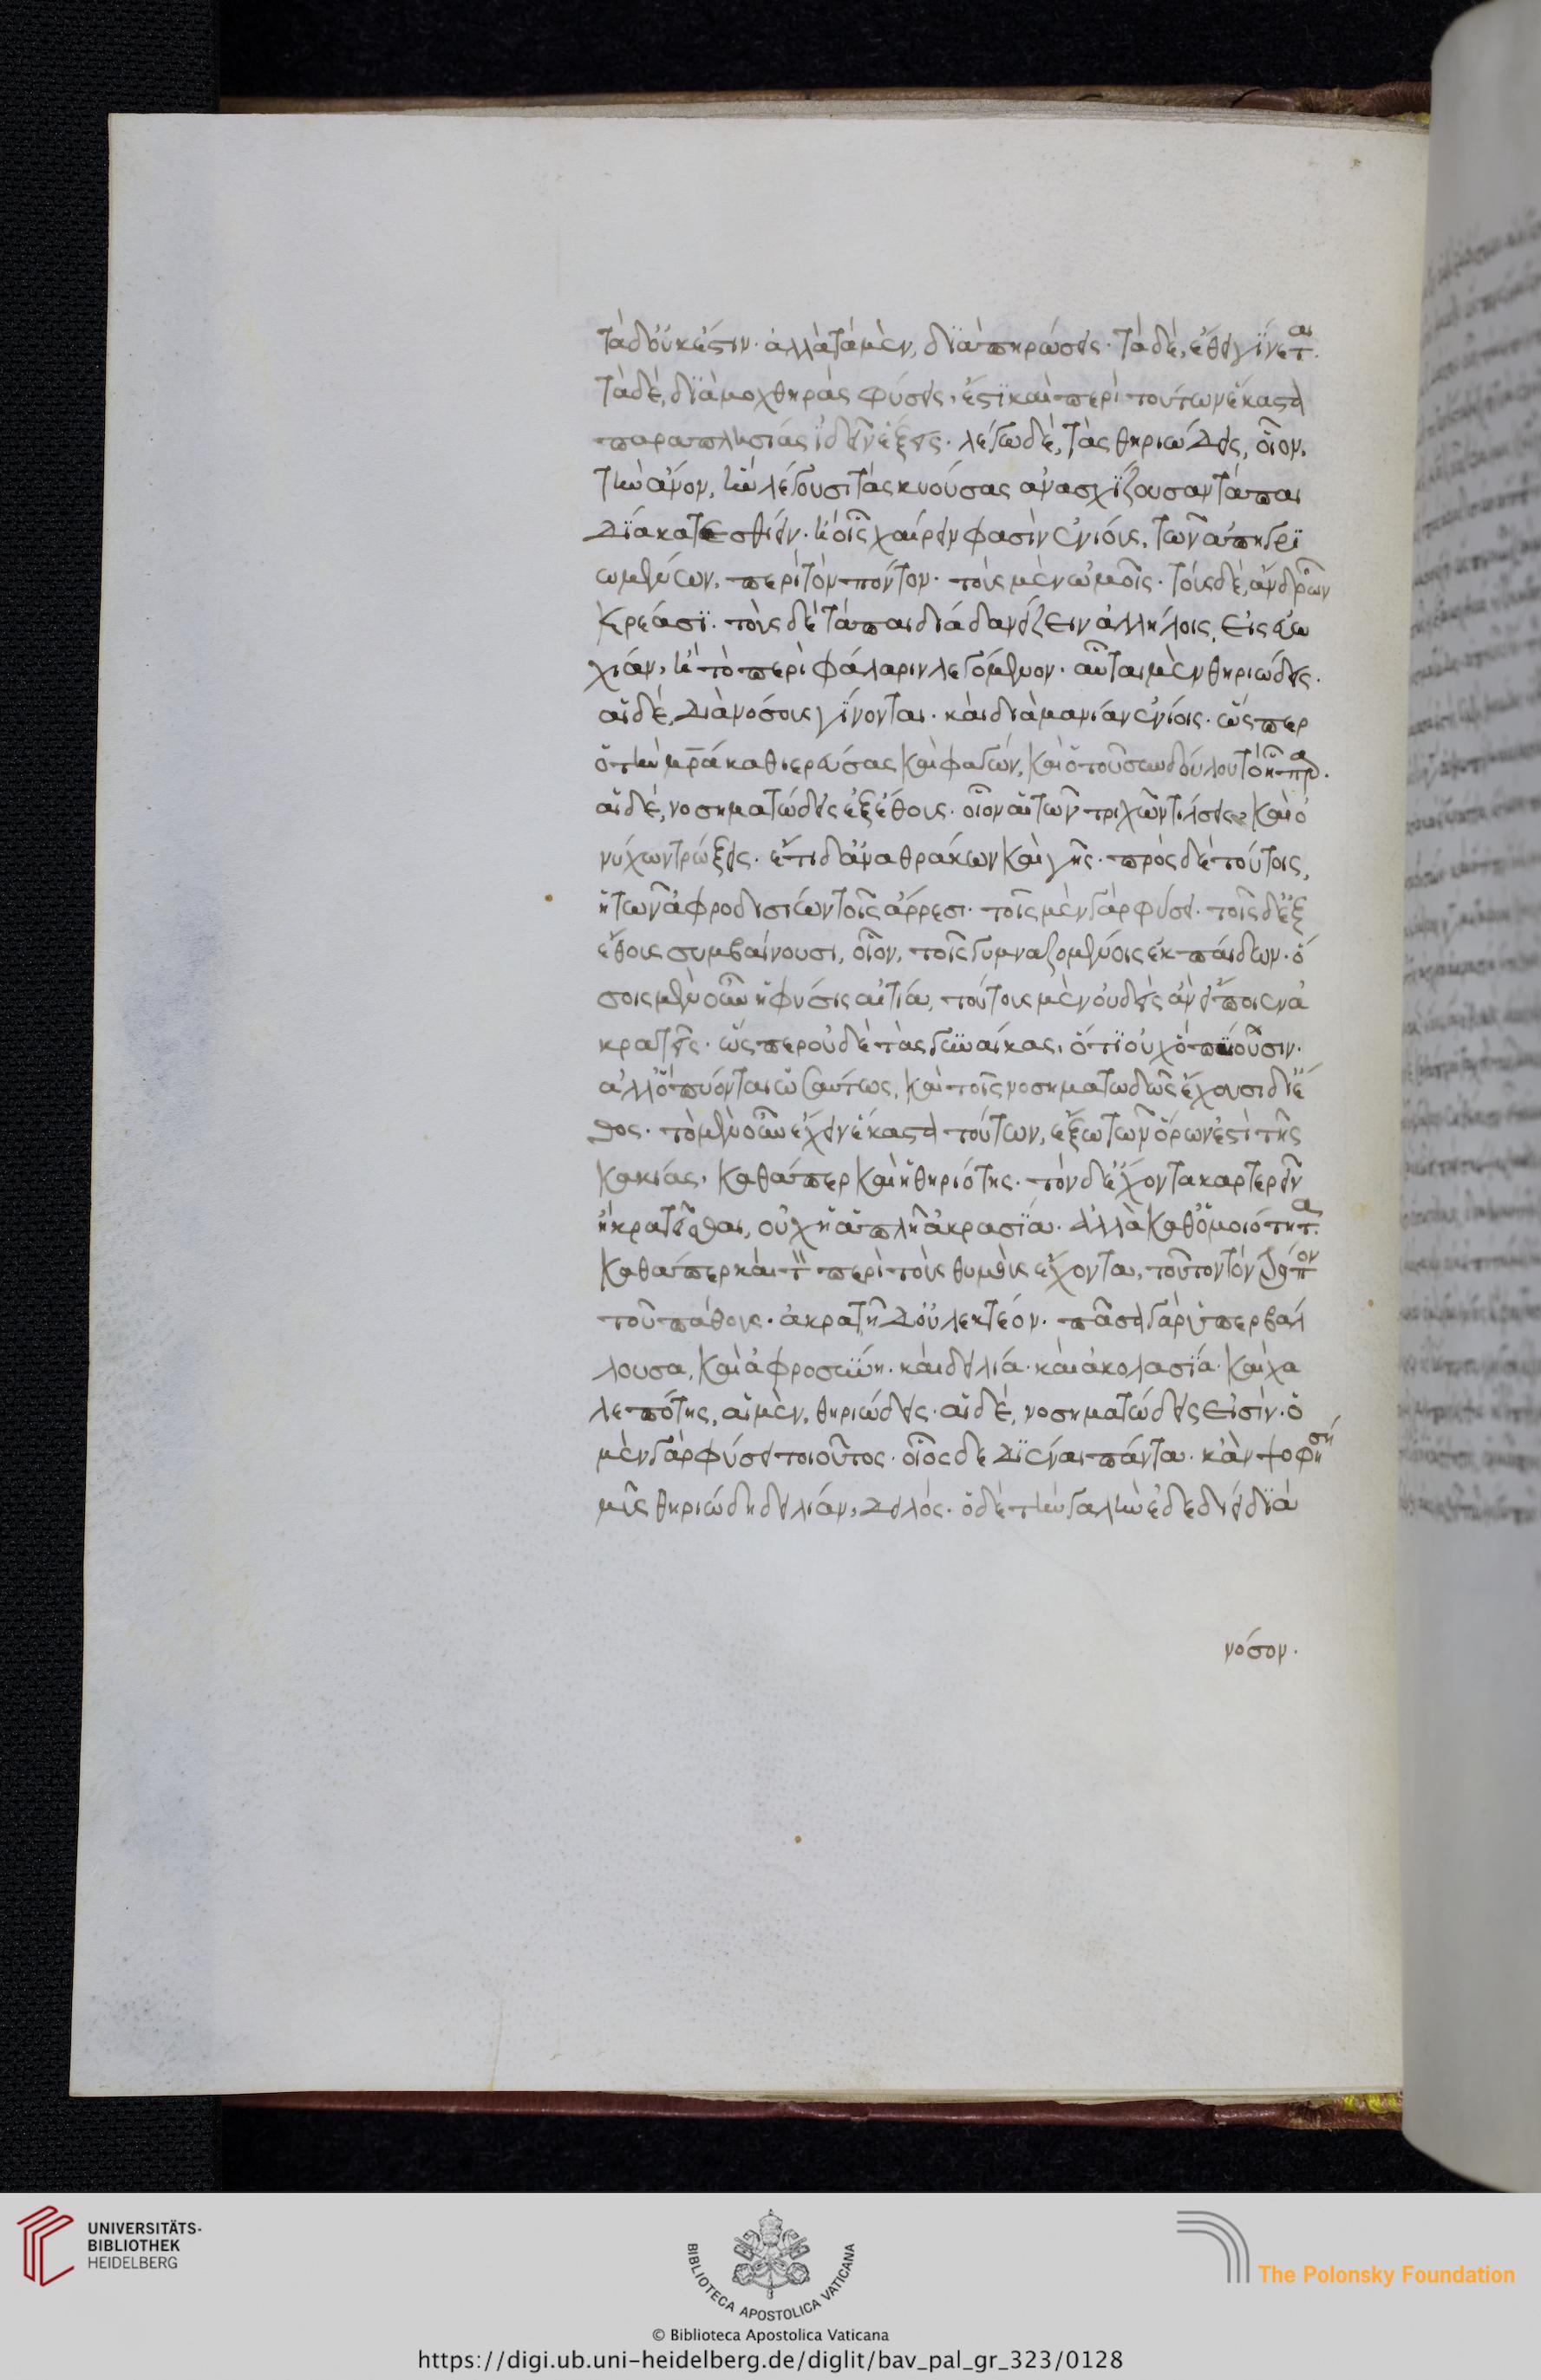 τὰ δ' οὐκ ἔστιν· ἀλλὰ τὰ μὲν, διὰ πηρώσεις· τὰ δὲ, ἔθει γίνεται.
τὰ δὲ, διὰ μοχθηρὰς φύσεις, ἔστι καὶ περὶ τούτων ἕκαστα
παραπλησίας ἰδεῖν ἕξεις· λέγω δὲ, τὰς θηριώδεις, οἷον,
τὴν ἄνον, ἣν λέγουσι τὰς κυούσας ἀνασχίζουσαν τὰ παι
δία κατεσθίειν. ἢ οἷς χαίρειν φασὶν ἐνίους, τῶν ἀπηγρι
ωμένων, περὶ τὸν πόντον· τοὺς μὲν ὠμοῖς· τοὺς δὲ, ἀνδρῶν
κρέασι· τοὺς δὲ τὰ παιδία δανείζειν ἀλλήλοις, εἰς εὐω
χίαν, ἢ τὸ περὶ φάλαριν λεγόμενον· αὗται μὲν θηριώδεις·
αἱ δὲ, διὰ νόσους γίνονται· καὶ διὰ μανίαν ἐνίοις· ὥσπερ
ὁ τὴν μρ̅α καθιερεύσας καὶ φαγών, καὶ ὁ τοῦ συνδούλου τὸ ἧπαρ.
αἱ δὲ, νοσηματώδεις ἐξ ἔθους· οἷον αἱ τῶν τριχῶν τίλσεις καὶ ὀ
νύχων τρώξεις· ἔτι δ' ἀνθράκων καὶ γῆς· πρὸς δὲ τούτοις,
ἡ τῶν ἀφροδισίων τοῖς ἄρρεσι· τοῖς μὲν γὰρ φύσει· τοῖς δ' ἐξ
ἔθους συμβαίνουσι, οἷον, τοῖς γυμναζομένοις ἐκ παίδων· ὅ
σοις μὲν οὖν ἡ φύσις αἰτία, τούτους μὲν οὐδεὶς ἂν εἴποιεν ἀ
κρατεῖς· ὥσπερ οὐδὲ τὰς γυναίκας, ὅτι οὐχ ὀπυιοῦσιν·
ἀλλ' ὀπύονται ὡσαύτως, καὶ τοῖς νοσηματωδῶς ἔχουσι δι' ἔ
θος· τὸ μὲν οὖν ἔχειν ἕκαστα τούτων, ἔξω τῶν ὅρων ἐστὶ τῆς
κακίας, καθάπερ καὶ ἡ θηριότης· τὸν δ' ἔχοντα καρτερεῖν
ἢ κρατεῖσθαι, οὐχ ἡ ἁπλῆ ἀκρασία· ἀλλὰ καθ' ὁμοιότητα·
καθάπερ καὶ τὸν περὶ τοὺς θυμοὺς ἔχοντα, τοῦτον τὸν τρόπον
τοῦ πάθους· ἀκρατῆ δ' οὐ λεκτέον· πᾶσα γὰρ ὑπερβάλ
λουσα, καὶ ἀφροσύνη· καὶ δειλία· καὶ ἀκολασία· καὶ χα
λεπότης, αἱ μὲν, θηριώδεις· αἱ δὲ, νοσηματώδεις εἰσίν· ὁ
μὲν γὰρ φύσει τοιοῦτος· οἷος δεδιέναι πάντα· κἂν ψοφήσῃ
μῦς θηριώδη δειλίαν, δειλός· ὁ δὲ τὴν γαλῆν ἐδεδίει διὰ
νόσον.
UNIVERSITÄTS-
BIBLIOTHEK
HEIDELBERG
BIBLIOTECA APOSTOLICA VATICANA
The Polonsky Foundation
© Biblioteca Apostolica Vaticana
https://digi.ub.uni-heidelberg.de/diglit/bav_pal_gr_323/0128